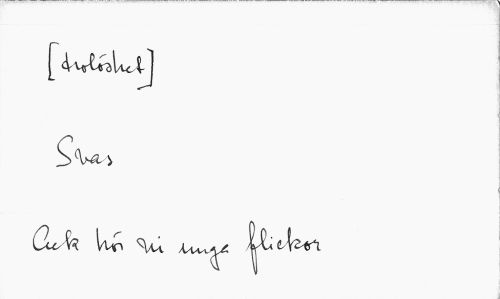 [trolöshet]
Svas
Ack hör ni unga flickor